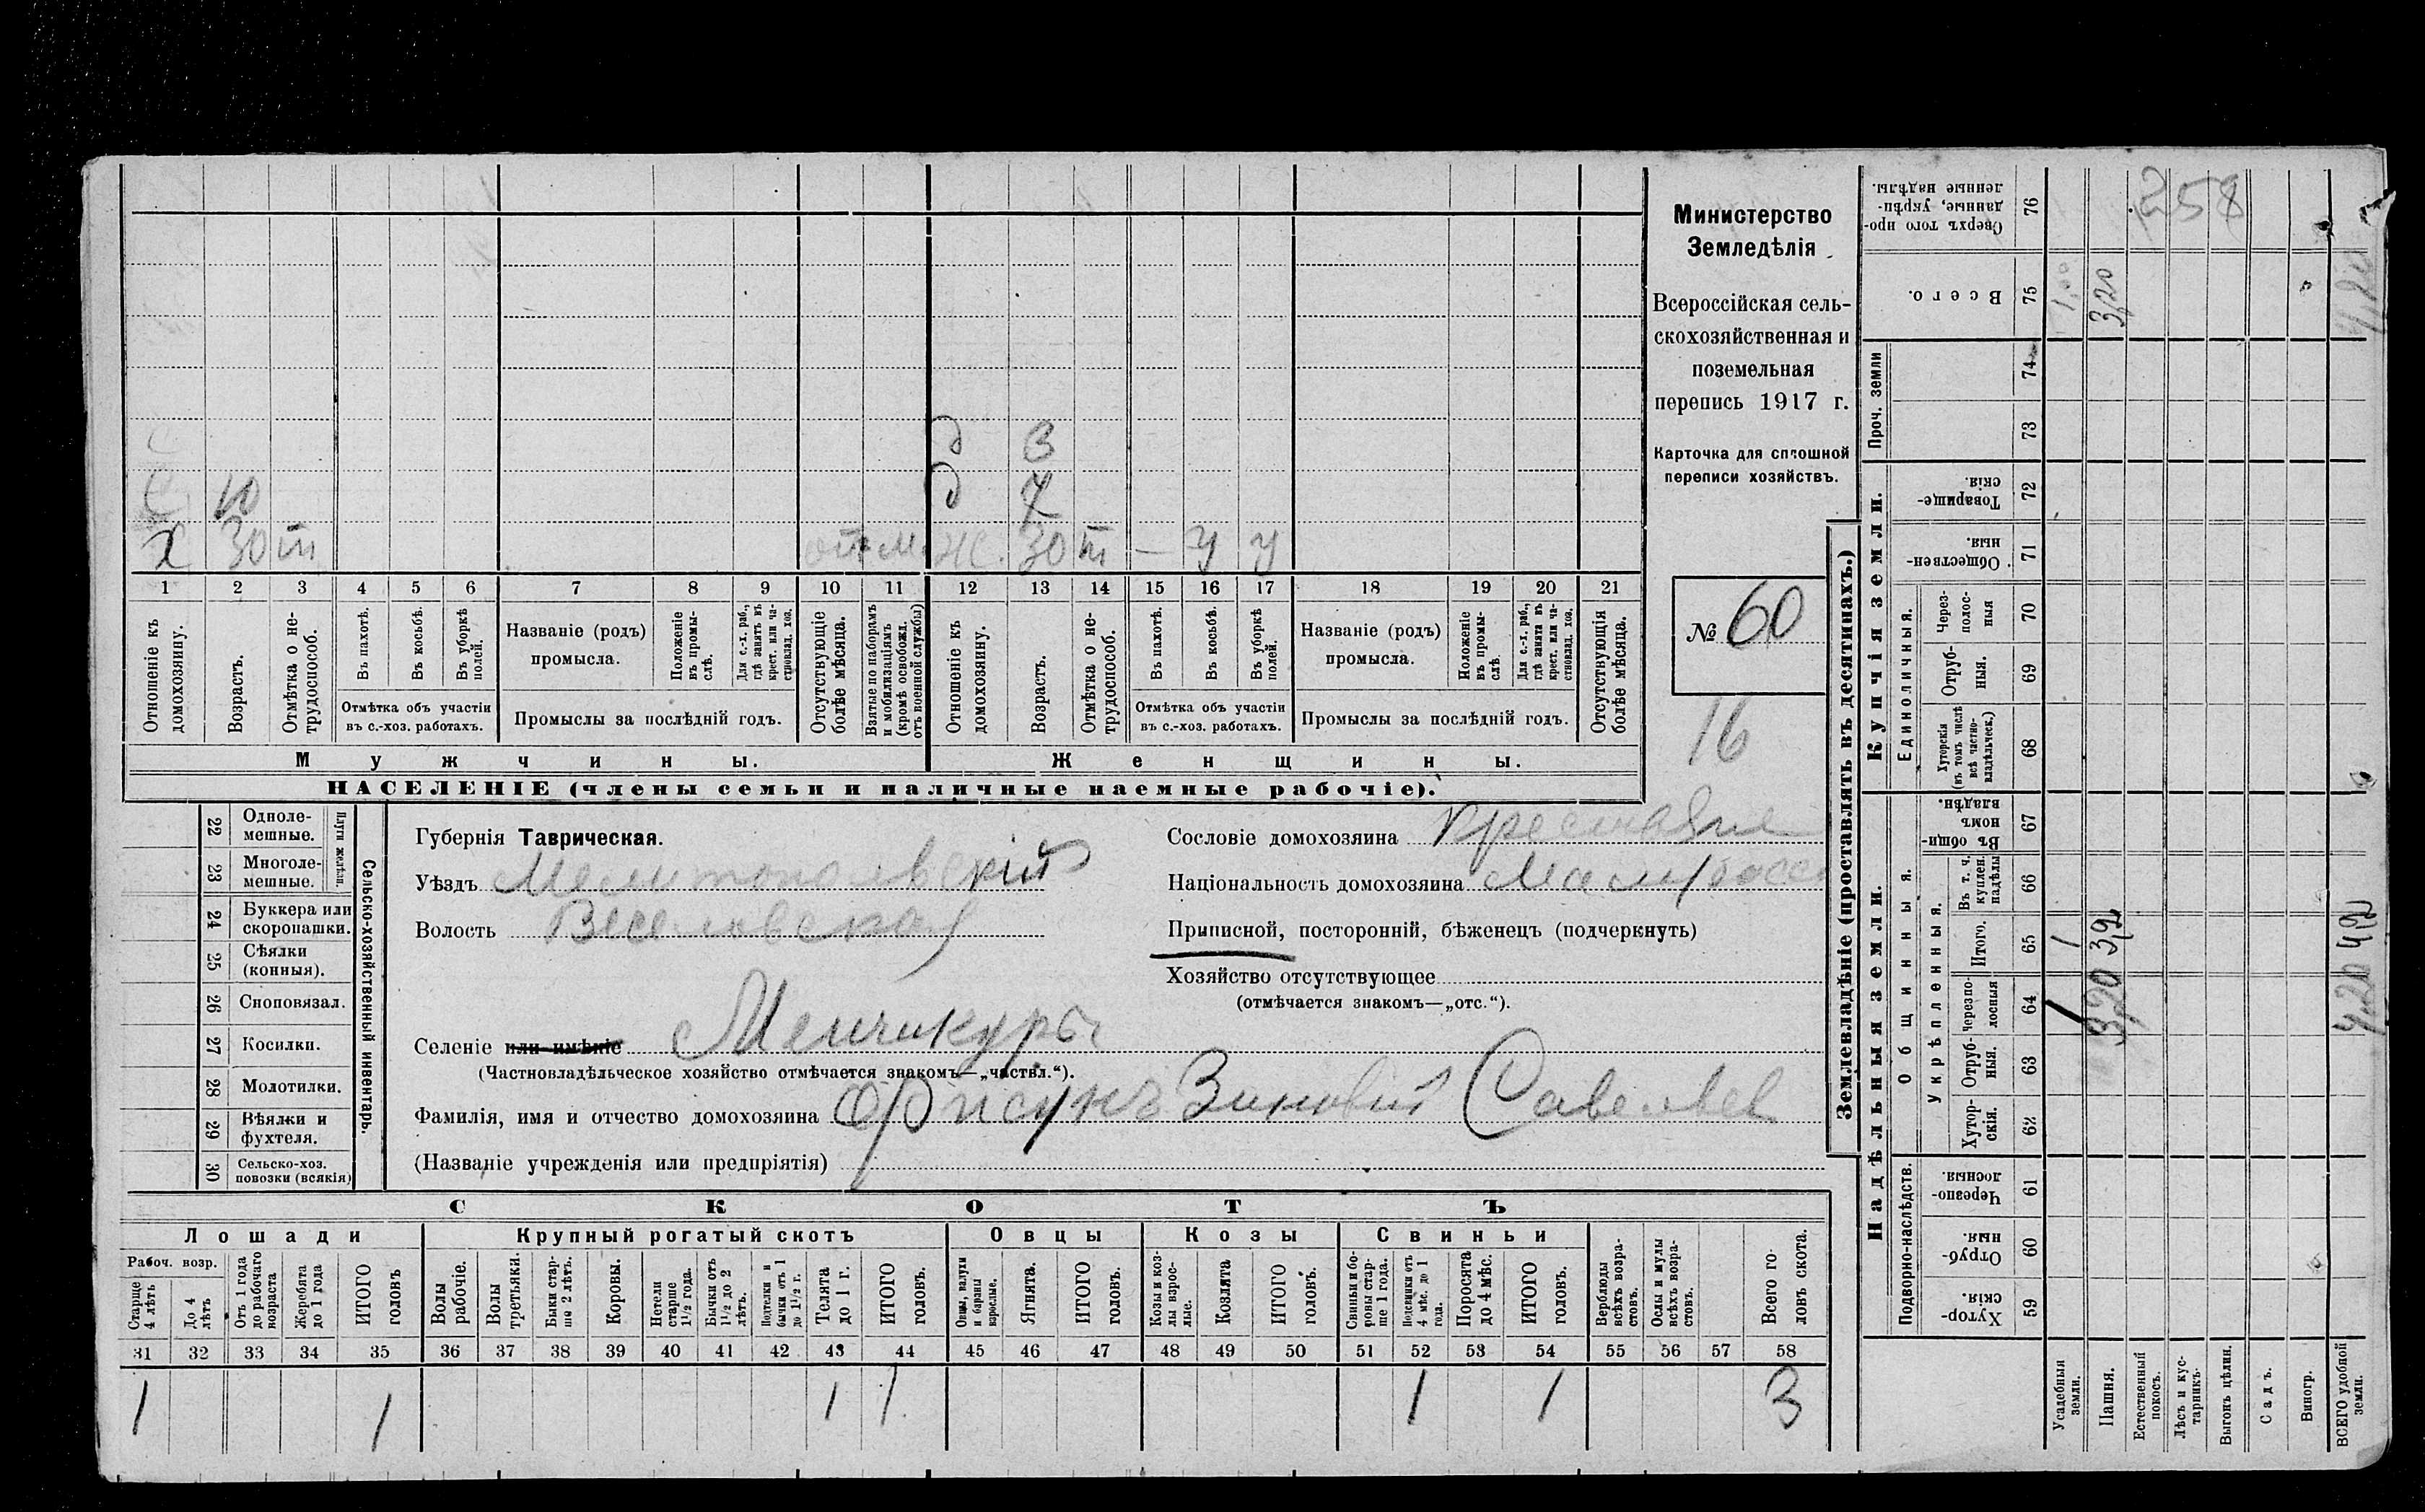 Министерство
Земледѣлія
Всероссійская сель-
скохозяйственная и
поземельная
перепись 1917 г.
Карточка для сплошной
переписи хозяйствъ.
№ 60
16
д 3
С 10 д 7
Х 30 т ж. 30 т — у у
1 2 3 4 5 6 7 8 9 10 11 12 13 14 15 16 17 18 19 20 21
Отношеніе къ домохозяину.
Возрастъ.
Отмѣтка о не-трудоспособ.
Въ пахотѣ.
Въ косьбѣ.
Въ уборкѣ полей.
Отмѣтка объ участіи
въ с.-хоз. работахъ.
Названіе (родъ)
промысла.
Положеніе въ промы-слѣ.
Для с.-х. раб., гдѣ занятъ въ крест. или ча-стновлад. хоз.
Промыслы за послѣдній годъ.
Отсутствующіе болѣе мѣсяца.
Взятые по наборамъ и мобилизаціямъ (кромѣ освобожд. отъ военной службы)
Отношеніе къ домохозяину.
Возрастъ.
Отмѣтка о не-трудоспособ.
Въ пахотѣ.
Въ косьбѣ.
Въ уборкѣ полей.
Отмѣтка объ участіи
въ с.-хоз. работахъ.
Названіе (родъ)
промысла.
Положеніе въ промы-слѣ.
Для с.-х. раб., гдѣ занята въ крест. или ча-стновлад. хоз.
Промыслы за послѣдній годъ.
Отсутствующія болѣе мѣсяца.
Мужчины.
Женщины.
НАСЕЛЕНІЕ (члены семьи и наличные наемные рабочіе).
22 Одноле-мешные.
23 Многоле-мешные.
Плуги желѣзн.
24 Буккера или скоропашки.
25 Сѣялки (конныя).
26 Сноповязал.
27 Косилки.
28 Молотилки.
29 Вѣялки и фухтеля.
30 Сельско-хоз. повозки (всякія)
Сельско-хозяйственный инвентарь.
Губернія Таврическая.
Уѣздъ Мелитопольскій
Волость Веселовская
Сословіе домохозяина
Національность домохозяина
Приписной, посторонній, бѣженецъ (подчеркнуть)
Хозяйство отсутствующее
(отмѣчается знакомъ—„отс.“).
Селеніе или имѣніе Менчикуры
(Частновладѣльческое хозяйство отмѣчается знакомъ—„частвл.“).
Фамилія, имя и отчество домохозяина Зиновій Савельев
(Названіе учрежденія или предпріятія)
СКОТЪ
Лошади
Крупный рогатый скотъ
Овцы
Козы
Свиньи
Рабоч. возр.
Старше 4 лѣтъ
До 4 лѣтъ
Отъ 1 года до рабочаго возраста
Жеребята до 1 года
ИТОГО головъ
Волы рабочіе.
Волы третьяки.
Быки стар-ше 2 лѣтъ.
Коровы.
Нетели старше 1½ года.
Бычки отъ 1½ до 2 лѣтъ.
Подтелки и бычки отъ 1 до 1½ г.
Телята до 1 г.
ИТОГО головъ.
Овцы, валухи и бараны взрослые.
Ягнята.
ИТОГО головъ.
Козы и коз-лы взрос-лые.
Козлята
ИТОГО головъ.
Свиньи и бо-ровы стар-ше 1 года.
Подсвинки отъ 4 мѣс. до 1 года.
Поросята до 4 мѣс.
ИТОГО головъ.
Верблюды всѣхъ возра-стовъ.
Ослы и мулы всѣхъ возра-стовъ.
Всего го-ловъ скота.
31 32 33 34 35 36 37 38 39 40 41 42 43 44 45 46 47 48 49 50 51 52 53 54 55 56 57 58
1 1 1 1 1 1 3
Землевладѣніе (проставлять въ десятинахъ.)
Надѣльныя земли.
Купчія земли.
Проч. земли
Подворно-наслѣдств.
Общинныя.
Укрѣпленныя.
Единоличныя.
Хутор-скія. 59
Отруб-ныя. 60
Черезпо-лосныя 61
Хутор-скія. 62
Отруб-ныя. 63
Черезпо-лосныя 64
Итого. 65
Въ т. ч. куплен. надѣлы 66
Въ общи-номъ владѣн. 67
Хуторскія (въ томъ числѣ всѣ частно-владѣльческ.) 68
Отруб-ныя. 69
Через-полос-ныя 70
Обществен-ныя. 71
Товарище-скія. 72
73
74
Всего. 75
Сверхъ того про-данные, укрѣп-ленные надѣлы. 76
Усадебныя земли. 1 1 1,00
Пашня. 3,20 3,20
Естественный покосъ.
Лѣсъ и кус-тарникъ.
Выгонъ цѣлин.
Садъ.
Виногр.
ВСЕГО удобной земли. 4,20 4,20
258